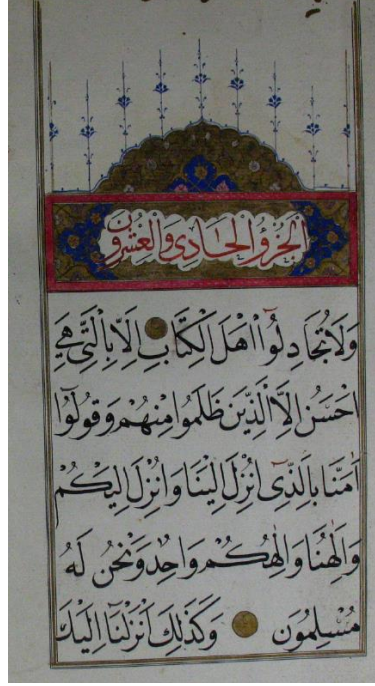 الجزؤ الحادى والعشرون
وَلَا تُجَادِلُٓوا اَهْلَ الْكِتَابِ اِلَّا بِالَّتٖى هِىَ
اَحْسَنُ اِلَّا الَّذٖينَ ظَلَمُوا مِنْهُمْ وَقُولُٓوا
اٰمَنَّا بِالَّذٖٓى اُنْزِلَ اِلَيْنَا وَاُنْزِلَ اِلَيْكُمْ
وَاِلٰهُنَا وَاِلٰهُكُمْ وَاحِدٌ وَنَحْنُ لَهُ
مُسْلِمُونَ وَكَذٰلِكَ اَنْزَلْنَٓا اِلَيْكَ